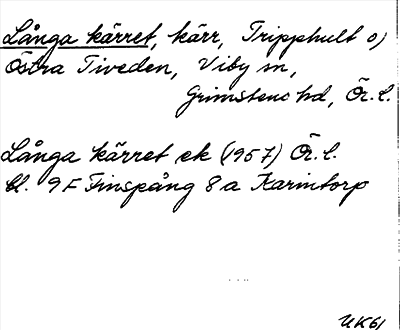 Långa kärret, kärr, Tripphult o)
Östra Tiveden, Viby sn,
Grimstens hd, Ör. l.
Långa kärret ek (1957) Ör. l.
bl. 9F Finspång 8a Karintorp
UK61